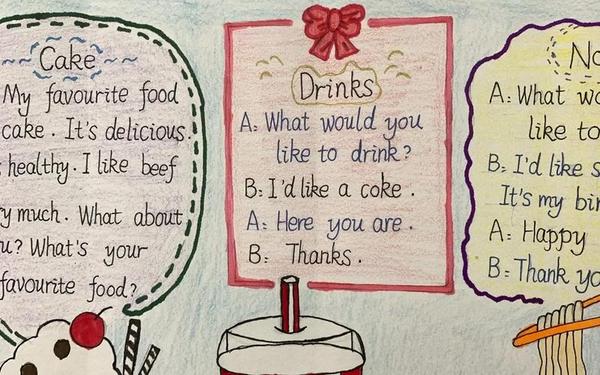 Cake
My favourite food
cake. It's delicious
healthy. I like beef
much. What about
What's your
favourite food?
Drinks
A: What would you
like to drink?
B: I'd like a coke.
A: Here you are.
B: Thanks.
A: What
like to
B: I'd like
It's my
A: Happy
B: Thank